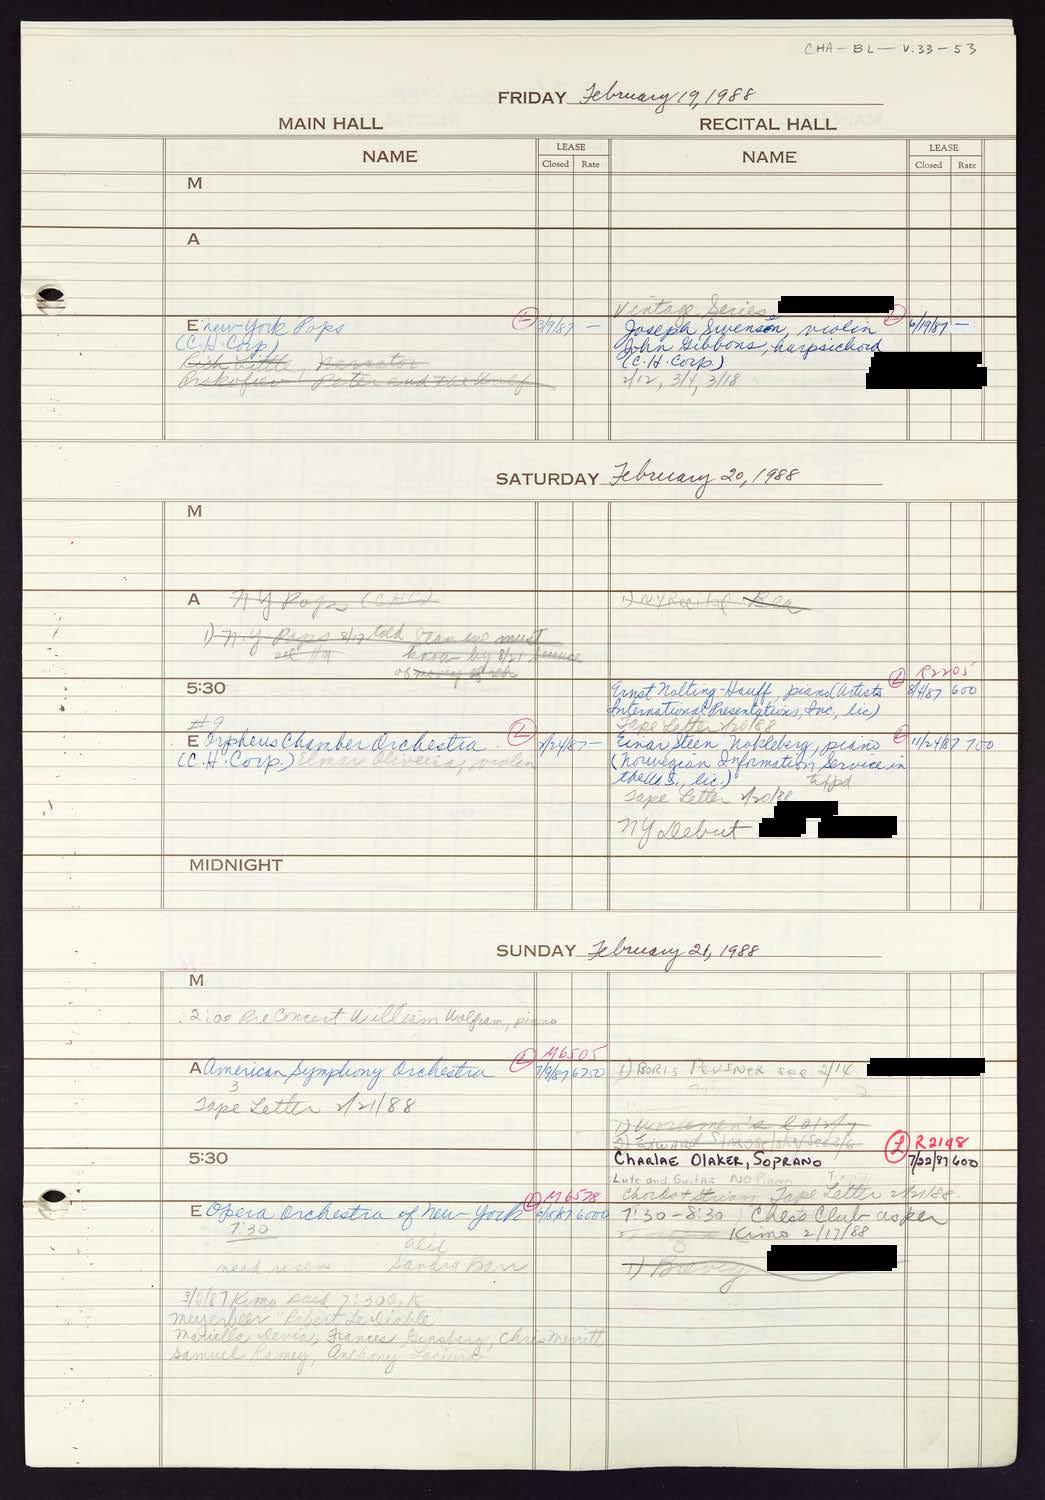 CHA-BL-V.33-53
FRIDAY February 19, 1988
MAIN HALL
RECITAL HALL
NAME
LEASE
Closed Rate
NAME
LEASE
Closed Rate
M
A
E New York Pops
(C.H. Corp.)
L 3/9/87 —
Prokofiev Peter and the Wolf
Narrator
Vintage Series
Joseph Swensen, violin
L 6/19/87 —
John Gibbons, harpsichord
(C.H. Corp.)
2/12, 3/4, 3/18
SATURDAY February 20, 1988
M
A NY Pops (CHC)
1) N.Y. Pops 8/17 told Stan we must
know by 8/21 because
1) NY Recital
5:30
Ernst Nolting-Hauff, piano (Artists
International Presentations, Inc., lic)
Tape Letter 2/20/88
L R2205
8/4/87 600
#9
E Orpheus Chamber Orchestra
(C.H. Corp.) Elmar Oliveira, violin
L 7/24/87 —
Einar Steen Nokleberg, piano
L 11/24/87 700
(Norwegian Information Service in
the U.S., lic.)
Tape Letter 2/20/88
NY Debut
MIDNIGHT
SUNDAY February 21, 1988
M
2:00 PreConcert William Wolfram, piano
A American Symphony Orchestra
3
Tape Letter 2/21/88
L M6505
7/9/87 6750
1) BORIS PEVSNER see 2/14
5:30
CHARLAE OLAKER, SOPRANO
Lute and Guitar NO Piano
Tape Letter 2/21/88
L R2198
7/22/87 600
E Opera Orchestra of New York
7:30
L M6578
6000
7:30-8:30 Chess Club as per
Kimo 2/17/88
Sandra Barr
3/6/87 Kimo said 7:30 O.K
Meyerbeer "Robert Le Diable"
Mariella Devia, Frances Ginsberg, Chris Merritt
Samuel Ramey, Anthony